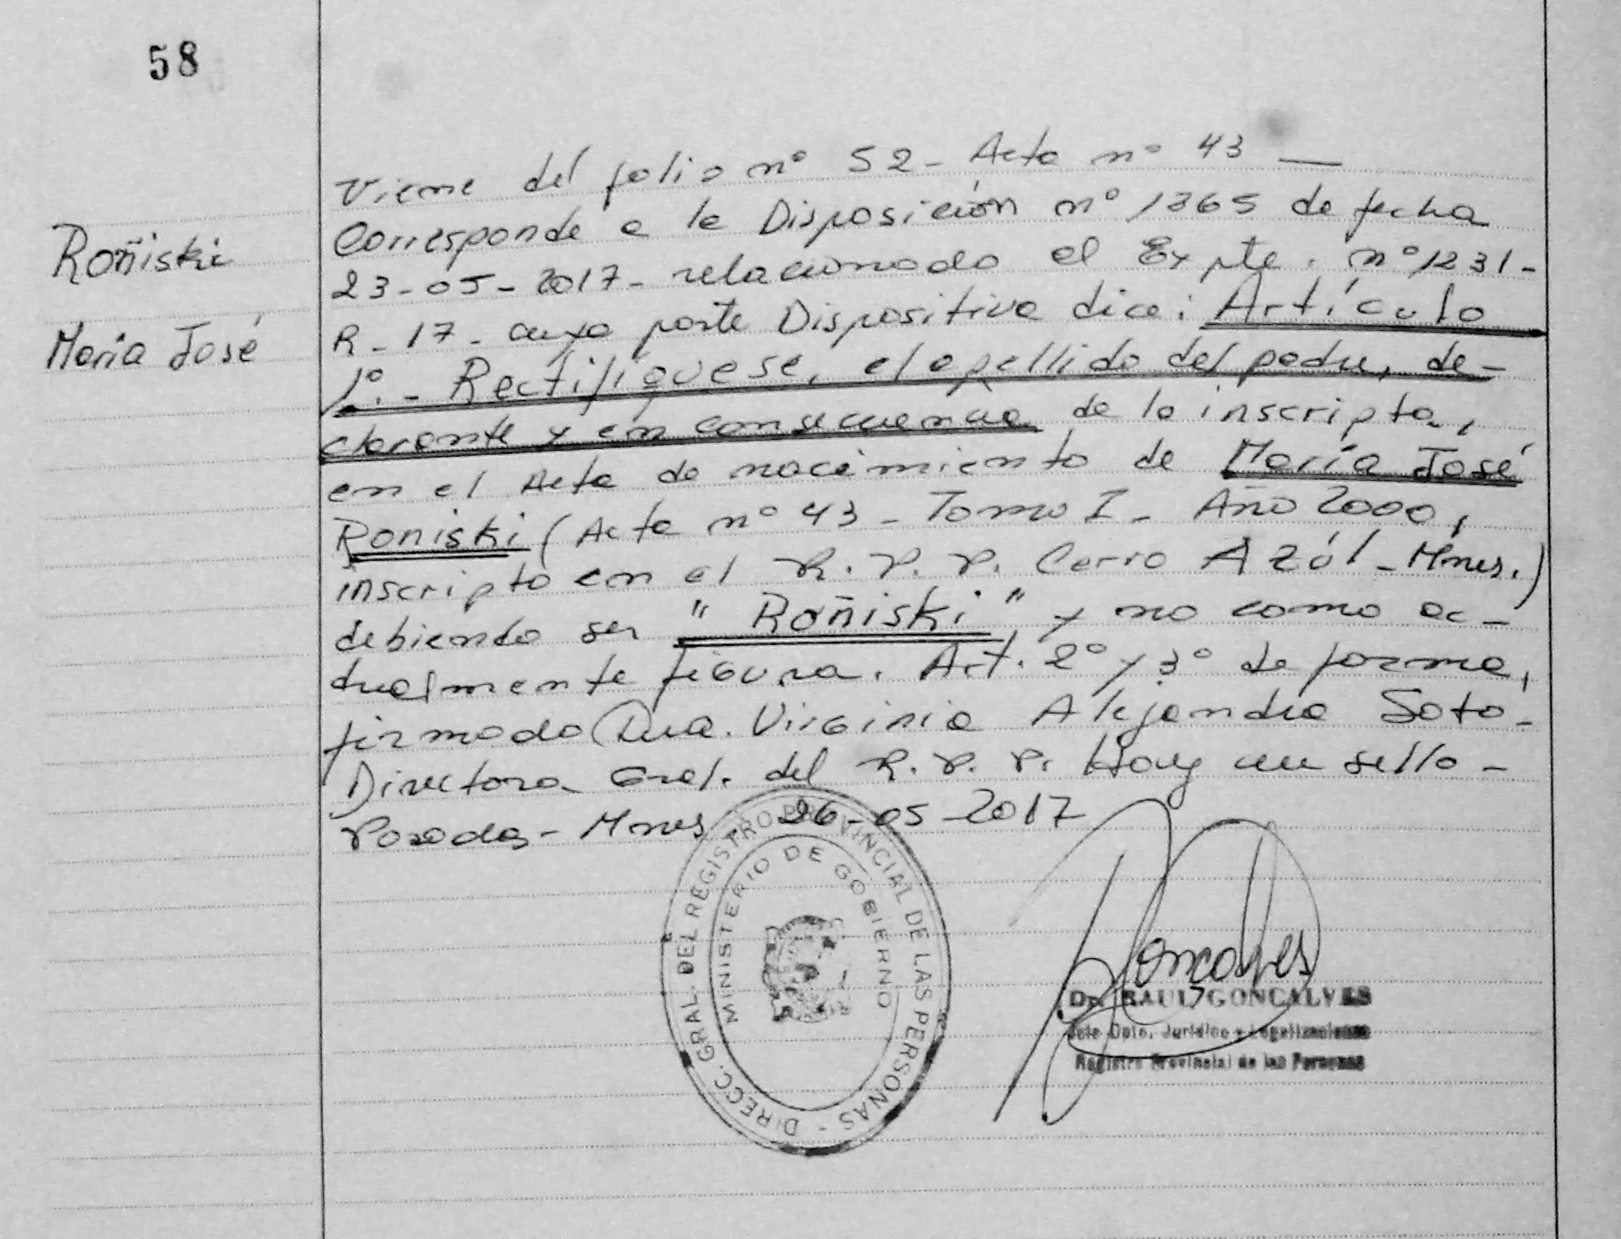 58
Roñiski
María José
Viene del folio nº 52 - Acta nº 43 —
Corresponde a la Disposición nº 1365 de fecha
23-05-2017- relacionado al Expte. nº 1231-
R-17- cuya parte Dispositiva dice: Artículo
1º.- Rectifíquese, el apellido del padre, de-
clarante y en consecuencia de la inscripta,
en el Acta de nacimiento de María José
Roniski (Acta nº 43 - Tomo I - Año 2000,
inscripto en el R.P.P. Cerro Azúl - Mnes.)
debiendo ser "Roñiski" y no como ac-
tualmente figura. Art. 2º y 3º de forma,
firmado Dra. Virginia Alejandra Soto-
Directora Gral. del R.P.P. Hay un sello-
Posadas - Mnes 26-05-2017
DIRECC. GRAL. DEL REGISTRO PROVINCIAL DE LAS PERSONAS -
MINISTERIO DE GOBIERNO
Goncalves
Dr. RAUL GONCALVES
Jefe Dpto. Jurídico y Legalizaciones
Registro Provincial de las Personas